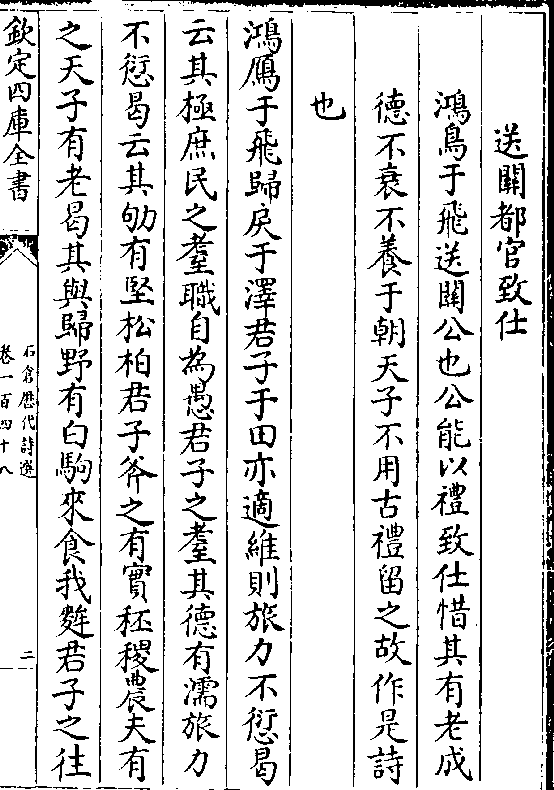 送關都官致仕
鴻鳥于飛送關公也公能以禮致仕惜其有老成
德不衰不養于朝天子不用古禮留之故作是詩
也
鴻鴈于飛歸戾于澤君子于田亦適維則旅力不愆曷
云其極庶民之耋職自為愚君子之耋其德有濡旅力
不愆曷云其劬有堅松柏君子斧之有實秠稷農夫有
之天子有老曷其與歸野有白駒來食我麰君子之往
欽定四庫全書
石倉歷代詩選
卷一百四十八
二